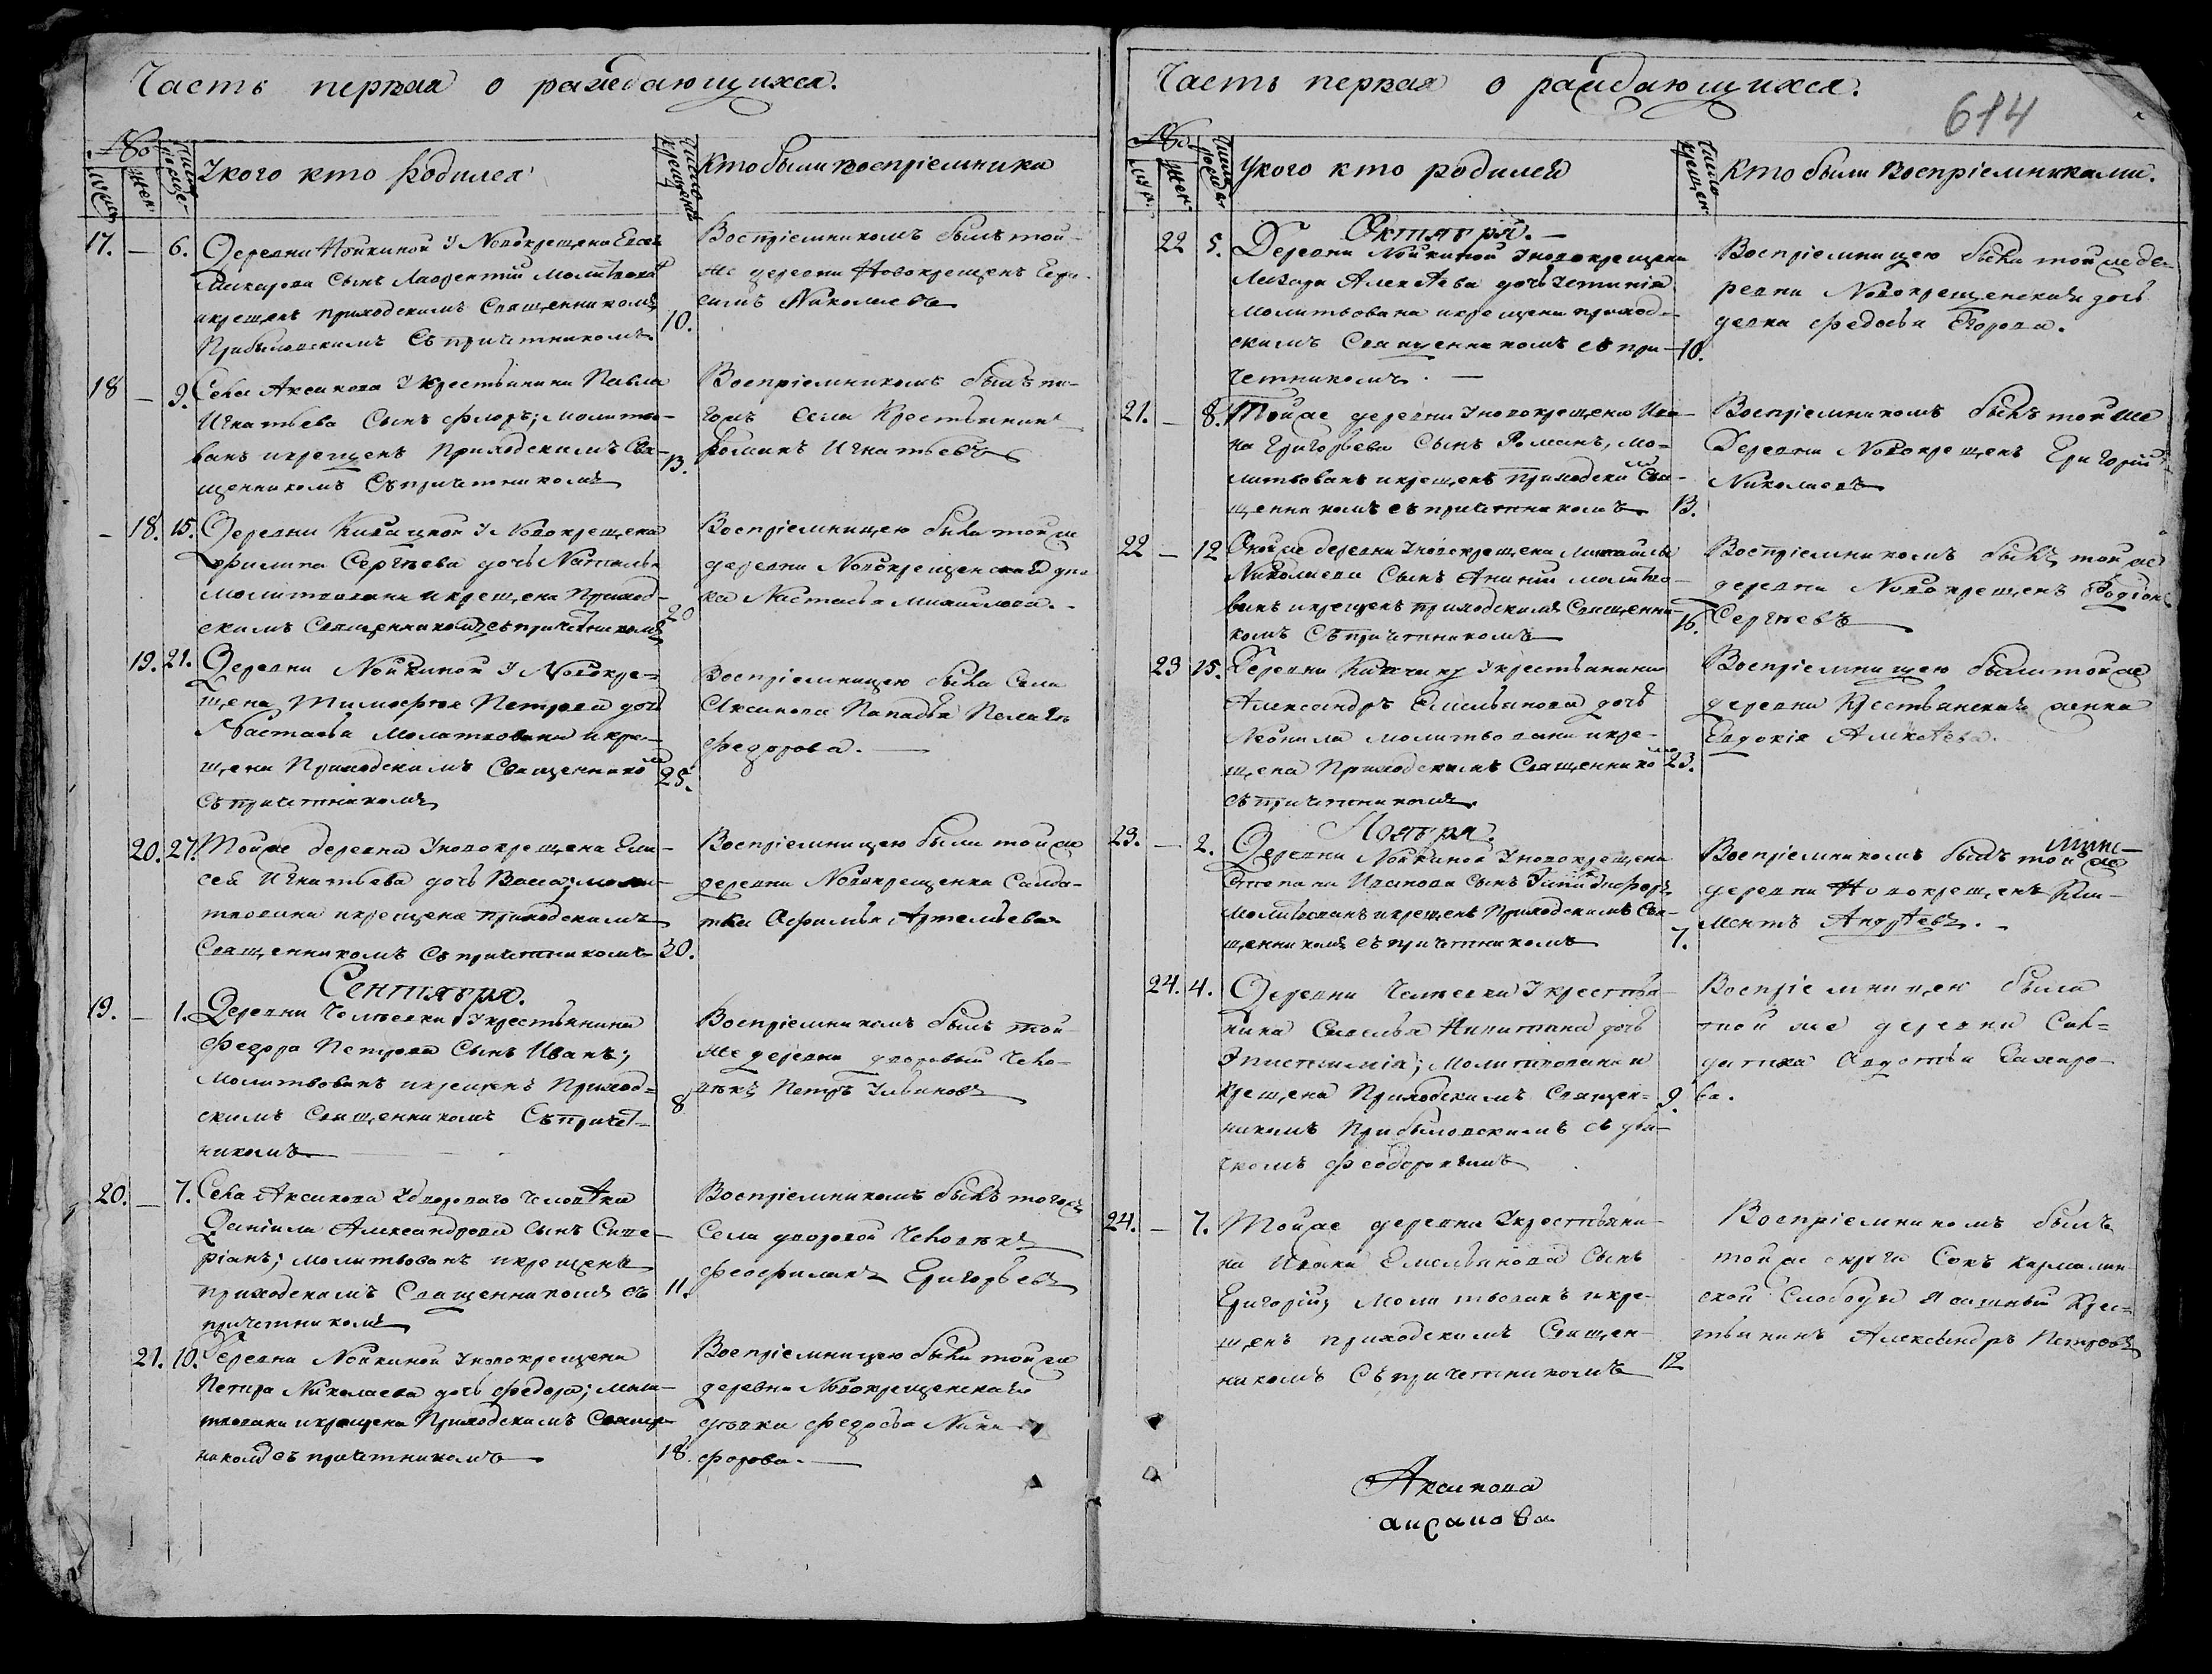 Часть первая о раждающихся.
№
муж.
жен.
число рожде-
У кого кто родился
число крещени
Кто были воспріемники
17. — 6. Деревни Нойкиной у Новокрещена Евсея
сынъ Лаврентій молитвованъ
и крещенъ приходскимъ Священникомъ
Прибыловскимъ съ причетникомъ 10.
Воспріемникомъ былъ той-
же деревни Новокрещенъ Гера-
симъ Николаевъ
18 — 9. Села Аксинова у крестьянина Павла
Игнатьева сынъ Флоръ; молитво-
ванъ и крещенъ приходскимъ Свя-
щенникомъ съ причетникомъ 13.
Воспріемникомъ былъ то-
гожъ села крестьянинъ
Романъ Игнатьевъ
— 18. 15. Деревни у Новокрещена
Филипа Сергѣева дочь Наталья
молитвована и крещена приход-
скимъ Священникомъ съ причетникомъ 20
Воспріемницею была той же
деревни Новокрещенская дѣв-
ка Настасья Михайлова.
19. 21. Деревни Нойкиной у Новокре-
щена Тимофея Петрова дочь
Настасья молитвована и кре-
щена приходскимъ Священникомъ 25.
съ причетникомъ
Воспріемницею была села
Аксинова попадья Пелагея
Федорова.
20. 27. Той же деревни у новокрещена Ели-
сея Игнатьева дочь Васса; моли-
твована и крещена приходскимъ
Священникомъ съ причетникомъ 30.
Воспріемницею была той же
деревни Новокрещенка Салда-
тка Афимья Артемьева
Сентября.
19. — 1. Деревни Челпевки у крестьянина
Федора Петрова сынъ Иванъ;
молитвованъ и крещенъ приход-
скимъ Священникомъ съ причет-
никомъ 8
Воспріемникомъ былъ той
же деревни дворовый чело-
вѣкъ Петръ
20. — 7. Села Аксинова у двороваго человѣка
Даніила Александрова сынъ Север-
ріанъ; молитвованъ и крещенъ
приходскимъ Священникомъ съ 11.
причетникомъ
Воспріемникомъ былъ тогожъ
села дворовой человѣкъ
Феофилактъ Григорьевъ
21. 10. Деревни Нойкиной у новокрещена
Петра Николаева дочь Федора; моли-
твована и крещена приходскимъ Священ-
никомъ съ причетникомъ 18.
Воспріемницею была той же
деревни Новокрещенская
дѣвка Федосья Ники-
форова.
Часть первая о раждающихся.
614
№
муж.
жен.
У кого кто родился
число крещен
Кто были воспріемниками.
Октября.
22 5. Деревни Нойкиной у новокрещена
Алексѣева дочь Фетинія
молитвована и крещена приход-
скимъ Священникомъ съ при- 10.
четникомъ.
Воспріемницею была той же де-
ревни Новокрещенская дочь
девка Федосья Егорова.
21. — 8. Той же деревни у новокрещена Ива-
на Григорьева сынъ Романъ, мо-
литвованъ и крещенъ приходскимъ Свя-
щенникомъ съ причетникомъ 13.
Воспріемникомъ былъ той же
деревни Новокрещенъ Григорій
Николаевъ
22 — 12 Той же деревни у новокрещена Михайлы
Николаева сынъ Ананій молитво-
ванъ и крещенъ приходскимъ Священни-
комъ съ причетникомъ 16.
Воспріемникомъ былъ той же
деревни Новокрещенъ Родіонъ
Сергѣевъ
23 15. Деревни у крестьянина
Александръ Емельянова дочь
Леонила молитвована и кре-
щена приходскимъ Священникомъ 23.
съ причетникомъ
Воспріемницею была той же
деревни крестьянская женка
Евдокія Алексѣева.
Ноября.
23. — 2. Деревни Нойкиной у новокрещена
Степана Иванова сынъ Епидифоръ
молитвованъ и крещенъ приходскимъ Свя-
щенникомъ съ причетникомъ 7.
Воспріемникомъ былъ той же
деревни Новокрещенъ Кли-
ментъ Андрѣевъ.
24. 4. Деревни Челпевки у крестья-
нина Савелья Никитина дочь
Епистимія; молитвована и
крещена приходскимъ Священ- 9.
никомъ Прибыловскимъ съ дья-
чкомъ Феодоровымъ
Воспріемницею была
той же деревни Сал-
датка Авдотья Захаро-
ва.
24. — 7. Той же деревни у крестьяни-
на Ивана Емельянова сынъ
Григорій; молитвованъ и кре-
щенъ приходскимъ Священ-
никомъ съ причетникомъ 12
Воспріемникомъ былъ
той же округи Сокъ Кармалин-
ской Слободы ясашный крес-
тьянинъ Александръ Петровъ
Аксинова